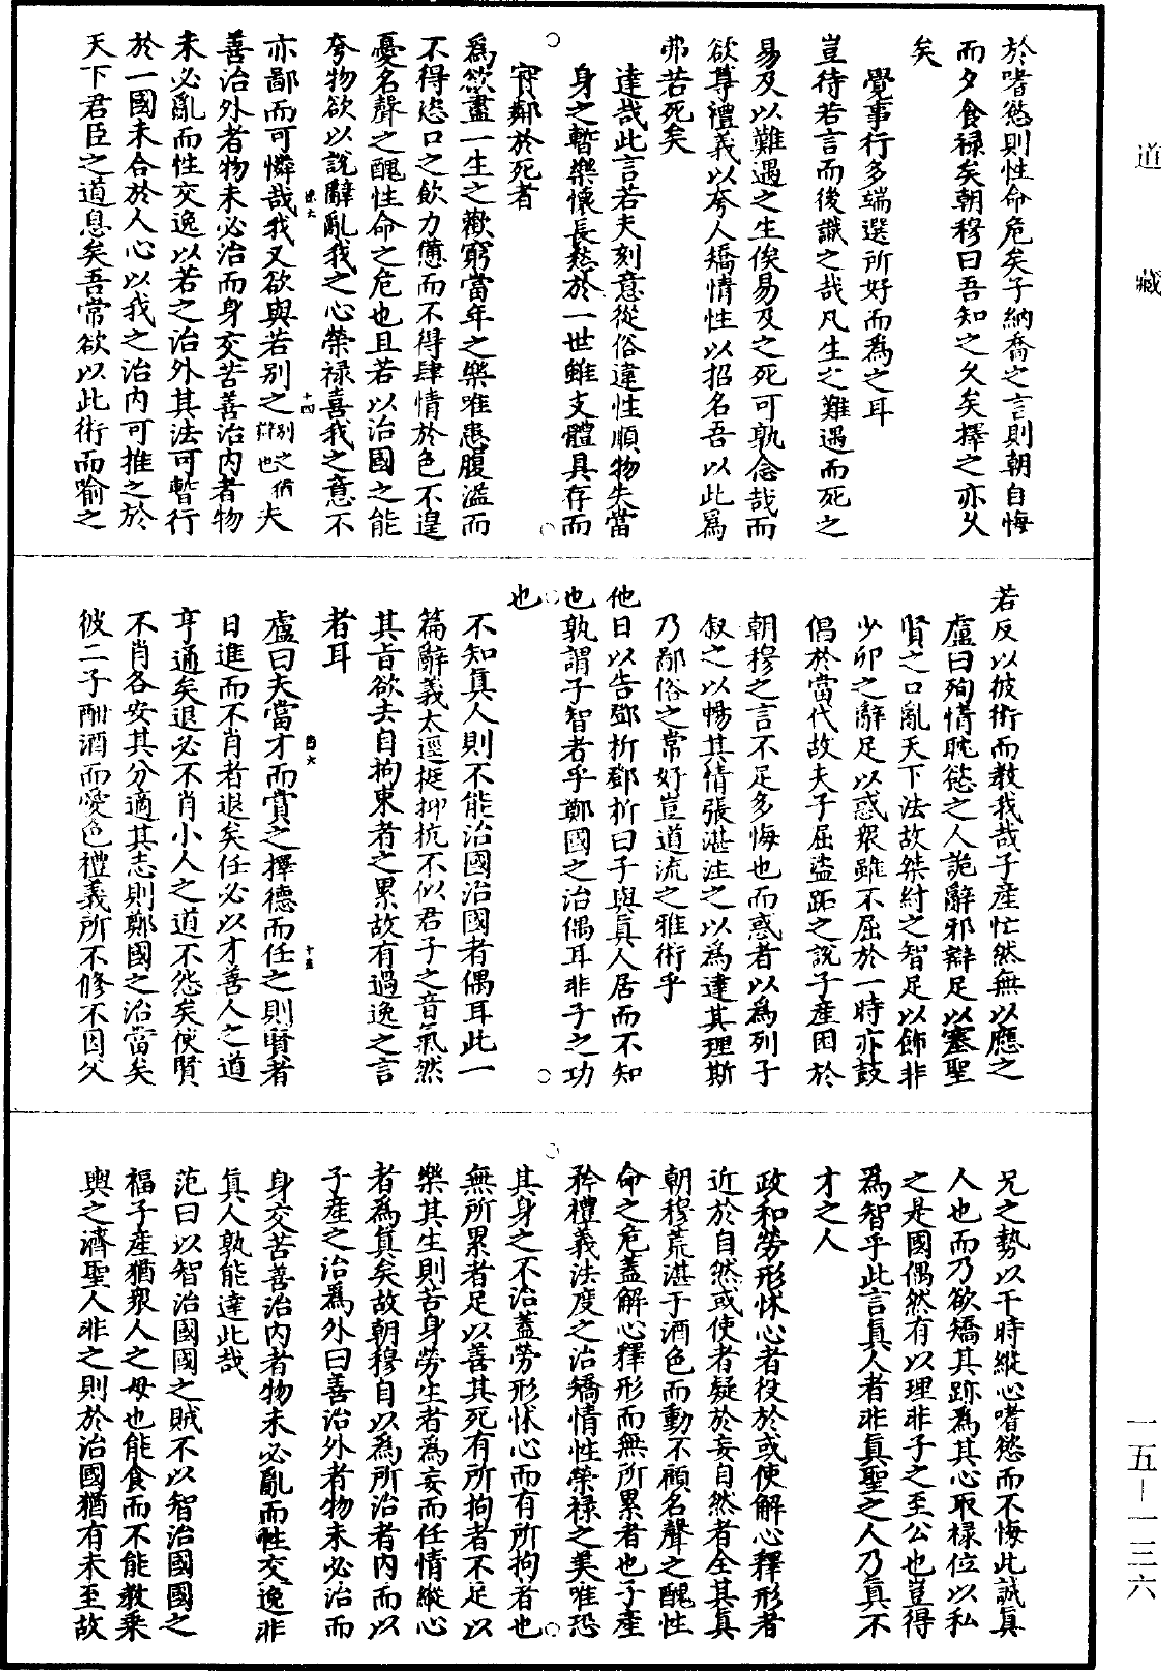 道藏
於嗜慾則性命危矣子納喬之言則朝自悔
而夕食祿矣朝穆曰吾知之久矣擇之亦久
矣
覺事行多端選所好而為之耳
豈待若言而後識之哉凡生之難遇而死之
易及以難遇之生俟易及之死可孰念哉而
欲尊禮義以夸人矯情性以招名吾以此為
弗若死矣
達哉此言若夫刻意從俗違性順物失當
身之暫樂懷長愁於一世雖支體具存而
實鄰於死者
為欲盡一生之歡窮當年之樂唯患腹溢而
不得恣口之飲力憊而不得肆情於色不遑
憂名聲之醜性命之危也且若以治國之能
夸物欲以說辭亂我之心榮祿喜我之意不
亦鄙而可憐哉我又欲與若別之別之猶辯也夫
善治外者物未必治而身交苦善治內者物
未必亂而性交逸以若之治外其法可暫行
於一國未合於人心以我之治內可推之於
天下君臣之道息矣吾常欲以此術而喻之
若反以彼術而教我哉子產忙然無以應之
盧曰殉情耽慾之人詭辭邪辯足以塞聖
賢之口亂天下法故桀紂之智足以飾非
少卯之辭足以惑眾雖不屈於一時亦鼓
倡於當代故夫子屈盜跖之說子產困於
朝穆之言不足多悔也而惑者以為列子
敘之以暢其情張湛注之以為達其理斯
乃鄙俗之常好豈道流之雅術乎
他日以告鄧析鄧析曰子與真人居而不知
也孰謂子智者乎鄭國之治偶耳非子之功
也
不知真人則不能治國治國者偶耳此一
篇辭義太逕挺抑抗不似君子之音氣然
其旨欲去自拘束者之累故有過逸之言
者耳
盧曰夫當才而賞之擇德而任之則賢者
日進而不肖者退矣任必以才善人之道
亨通矣退必不肖小人之道不怨矣使賢
不肖各安其分適其志則鄭國之治當矣
彼二子酣酒而愛色禮義所不修不因父
兄之勢以干時縱心嗜慾而不悔此誠真
人也而乃欲矯其跡為其心取祿位以私
之是國偶然有以理非子之至公也豈得
為智乎此言真人者非真聖之人乃真不
才之人
政和勞形怵心者役於或使解心釋形者
近於自然或使者疑於妄自然者全其真
朝穆荒湛于酒色而動不顧名聲之醜性
命之危蓋解心釋形而無所累者也子產
矜禮義法度之治矯情性榮祿之美唯恐
其身之不治蓋勞形怵心而有所拘者也
無所累者足以善其死有所拘者不足以
樂其生則苦身勞生者為妄而任情縱心
者為真矣故朝穆自以為所治者內而以
子產之治為外曰善治外者物未必治而
身交苦善治內者物未必亂而性交逸非
真人孰能達此哉
范曰以智治國國之賊不以智治國國之
福子產猶眾人之母也能食而不能教乘
輿之濟聖人非之則於治國猶有未至故
一五－一三六